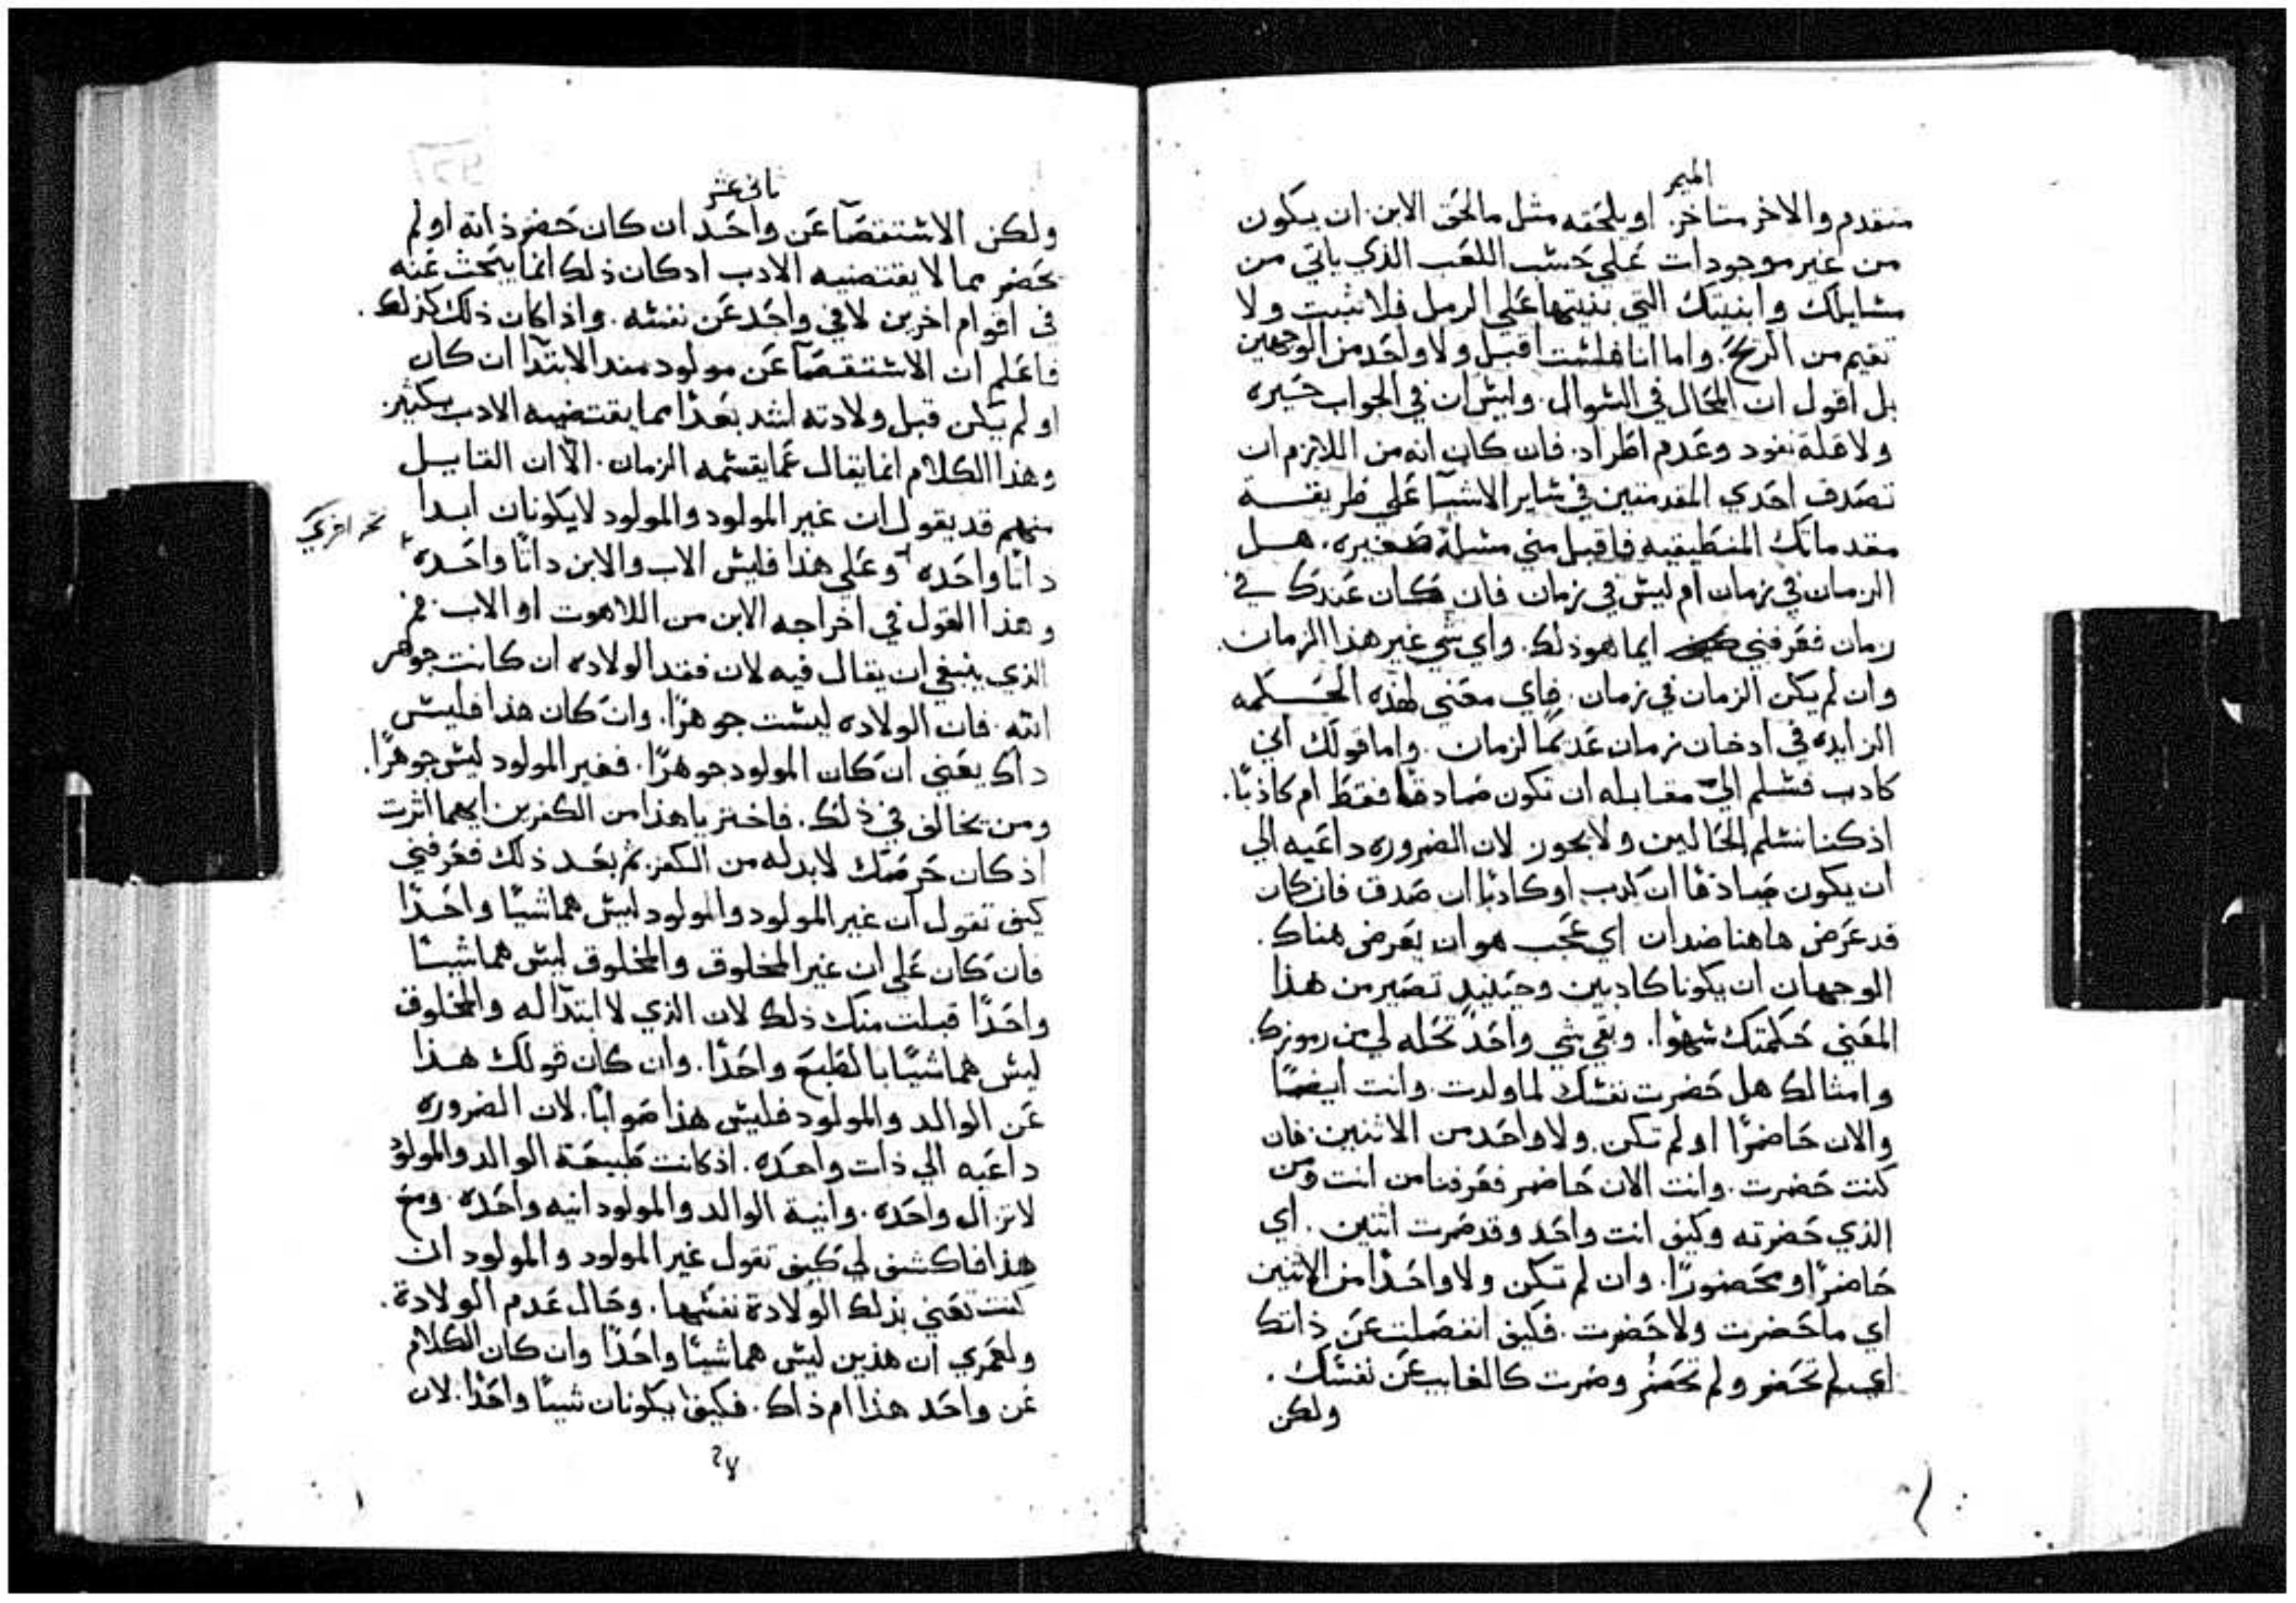 الميمر
متقدم والاخر متاخر. او يلحقه مثل ما لحق الابن. ان يكون
من غير موجودات علي حسب اللعب الذي ياتي من
مسايلك وابنيتك التي بنيتها علي الرمل فلا تثبت ولا
تقيم من الريح. واما انا فلست اقبل ولا واحد من الوجهين
بل اقول ان المحال في السوال. وليس ان في الجواب حيره
ولا قلة نفود وعدم اطراد. فان كان انه من اللازم ان
تصدف احدي المقدمتين في ساير الاشيا علي طريقة
مقدماتك المنطيقيه فاقبل مني مسلة صغيره. هل
الزمان في زمان ام ليس في زمان فان كان عندك في
زمان فعرفني ايما هو ذلك. واي شي غير هذا الزمان.
وان لم يكن الزمان في زمان. فاي معني لهذه الحكمه
الزايده في ادخان زمان عدكما لزمان. واما قولك اني
كادب فسلم الي مقابله ان تكون صادقا فقط ام كاذبا.
اذ كنا نسلم الحالين ولا يجوز لان الضروره داعيه الي
ان يكون صادقا ان كدب او كادبا ان صدق فان كان
قد عرض هاهنا ضدان اي عجب هو ان يعرض هناك.
الوجهان ان يكونا كادبين وحينيد تصير من هذا
المعني حكمتك سهوا. وبقي شي واحد تحله لي من رموزك.
وامثالك هل حضرت نفسك لما ولدت. وانت ايضا
والان حاضرا او لم تكن. ولا واحد من الاثنين. فان
كنت حضرت. وانت الان حاضر فعرفنا من انت ومن
الذي حضرته وكيف انت واحد وقد صرت اثنين. اي
حاضرا ومحضورا. وان لم تكن ولا واحدا من الاثنين
اي ما حضرت ولا حضرت. فكيف انفصلت عن ذاتك
اي لم تحضر ولم تحضر وصرت كالغايب عن نفسك.
ولكن
ثاني عشر
ولكن الاستقصا عن واحد ان كان حضر ذاته او لم
يحضر مما لا يقتضيه الادب اد كان ذلك انما يبحث عنه
في اقوام اخرين لا في واحد عن نفسه. واذا كان ذلك كذلك.
فاعلم ان الاستقصا عن مولود مند الابتدا ان كان
او لم يكن قبل ولادته اشد بعدا مما يقتضيه الادب بكثير.
وهذا الكلام انما يقال عما يقسمه الزمان. الا ان القايل
منهم قد يقول ان غير المولود والمولود لا يكونان ابدا
ذاتا واحده وعلي هذا فليس الاب والابن ذاتا واحده
وهذا القول في اخراجه الابن من اللاهوت او الاب.
الذي ينبغي ان يقال فيه لان فقد الولاده ان كانت جوهر
الله. فان الولاده ليست جوهرا. وان كان هذا فليس
داك يعني ان كان المولود جوهرا. فغير المولود ليس جوهرا.
ومن يخالف في ذلك. فاختر يا هذا من الكفرين ايهما اثرت
اذ كان حرصك لا بد له من الكفر. ثم بعد ذلك فعرفني
كيف تقول ان غير المولود والمولود ليس هما شيا واحدا
فان كان علي ان غير المخلوق والمخلوق ليس هما شيا
واحدا قبلت منك ذلك لان الذي لا ابتدا له والمخلوق
ليس هما شيا بالطبع واحدا. وان كان قولك هذا
عن الوالد والمولود فليس هذا صوابا. لان الضروره
داعيه الي ذات واحده. اذ كانت طبيعة الوالد والمولود
لا تزال واحده. وانية الوالد والمولود انيه واحده. ومع
هذا فاكشف لي كيف تقول غير المولود والمولود ان
كنت تعني بذلك الولادة نفسها. وحال عدم الولادة.
ولعمري ان هذين ليس هما شيا واحدا وان كان الكلام
عن واحد هذا ام ذاك. فكيف يكونان شيا واحدا. لان